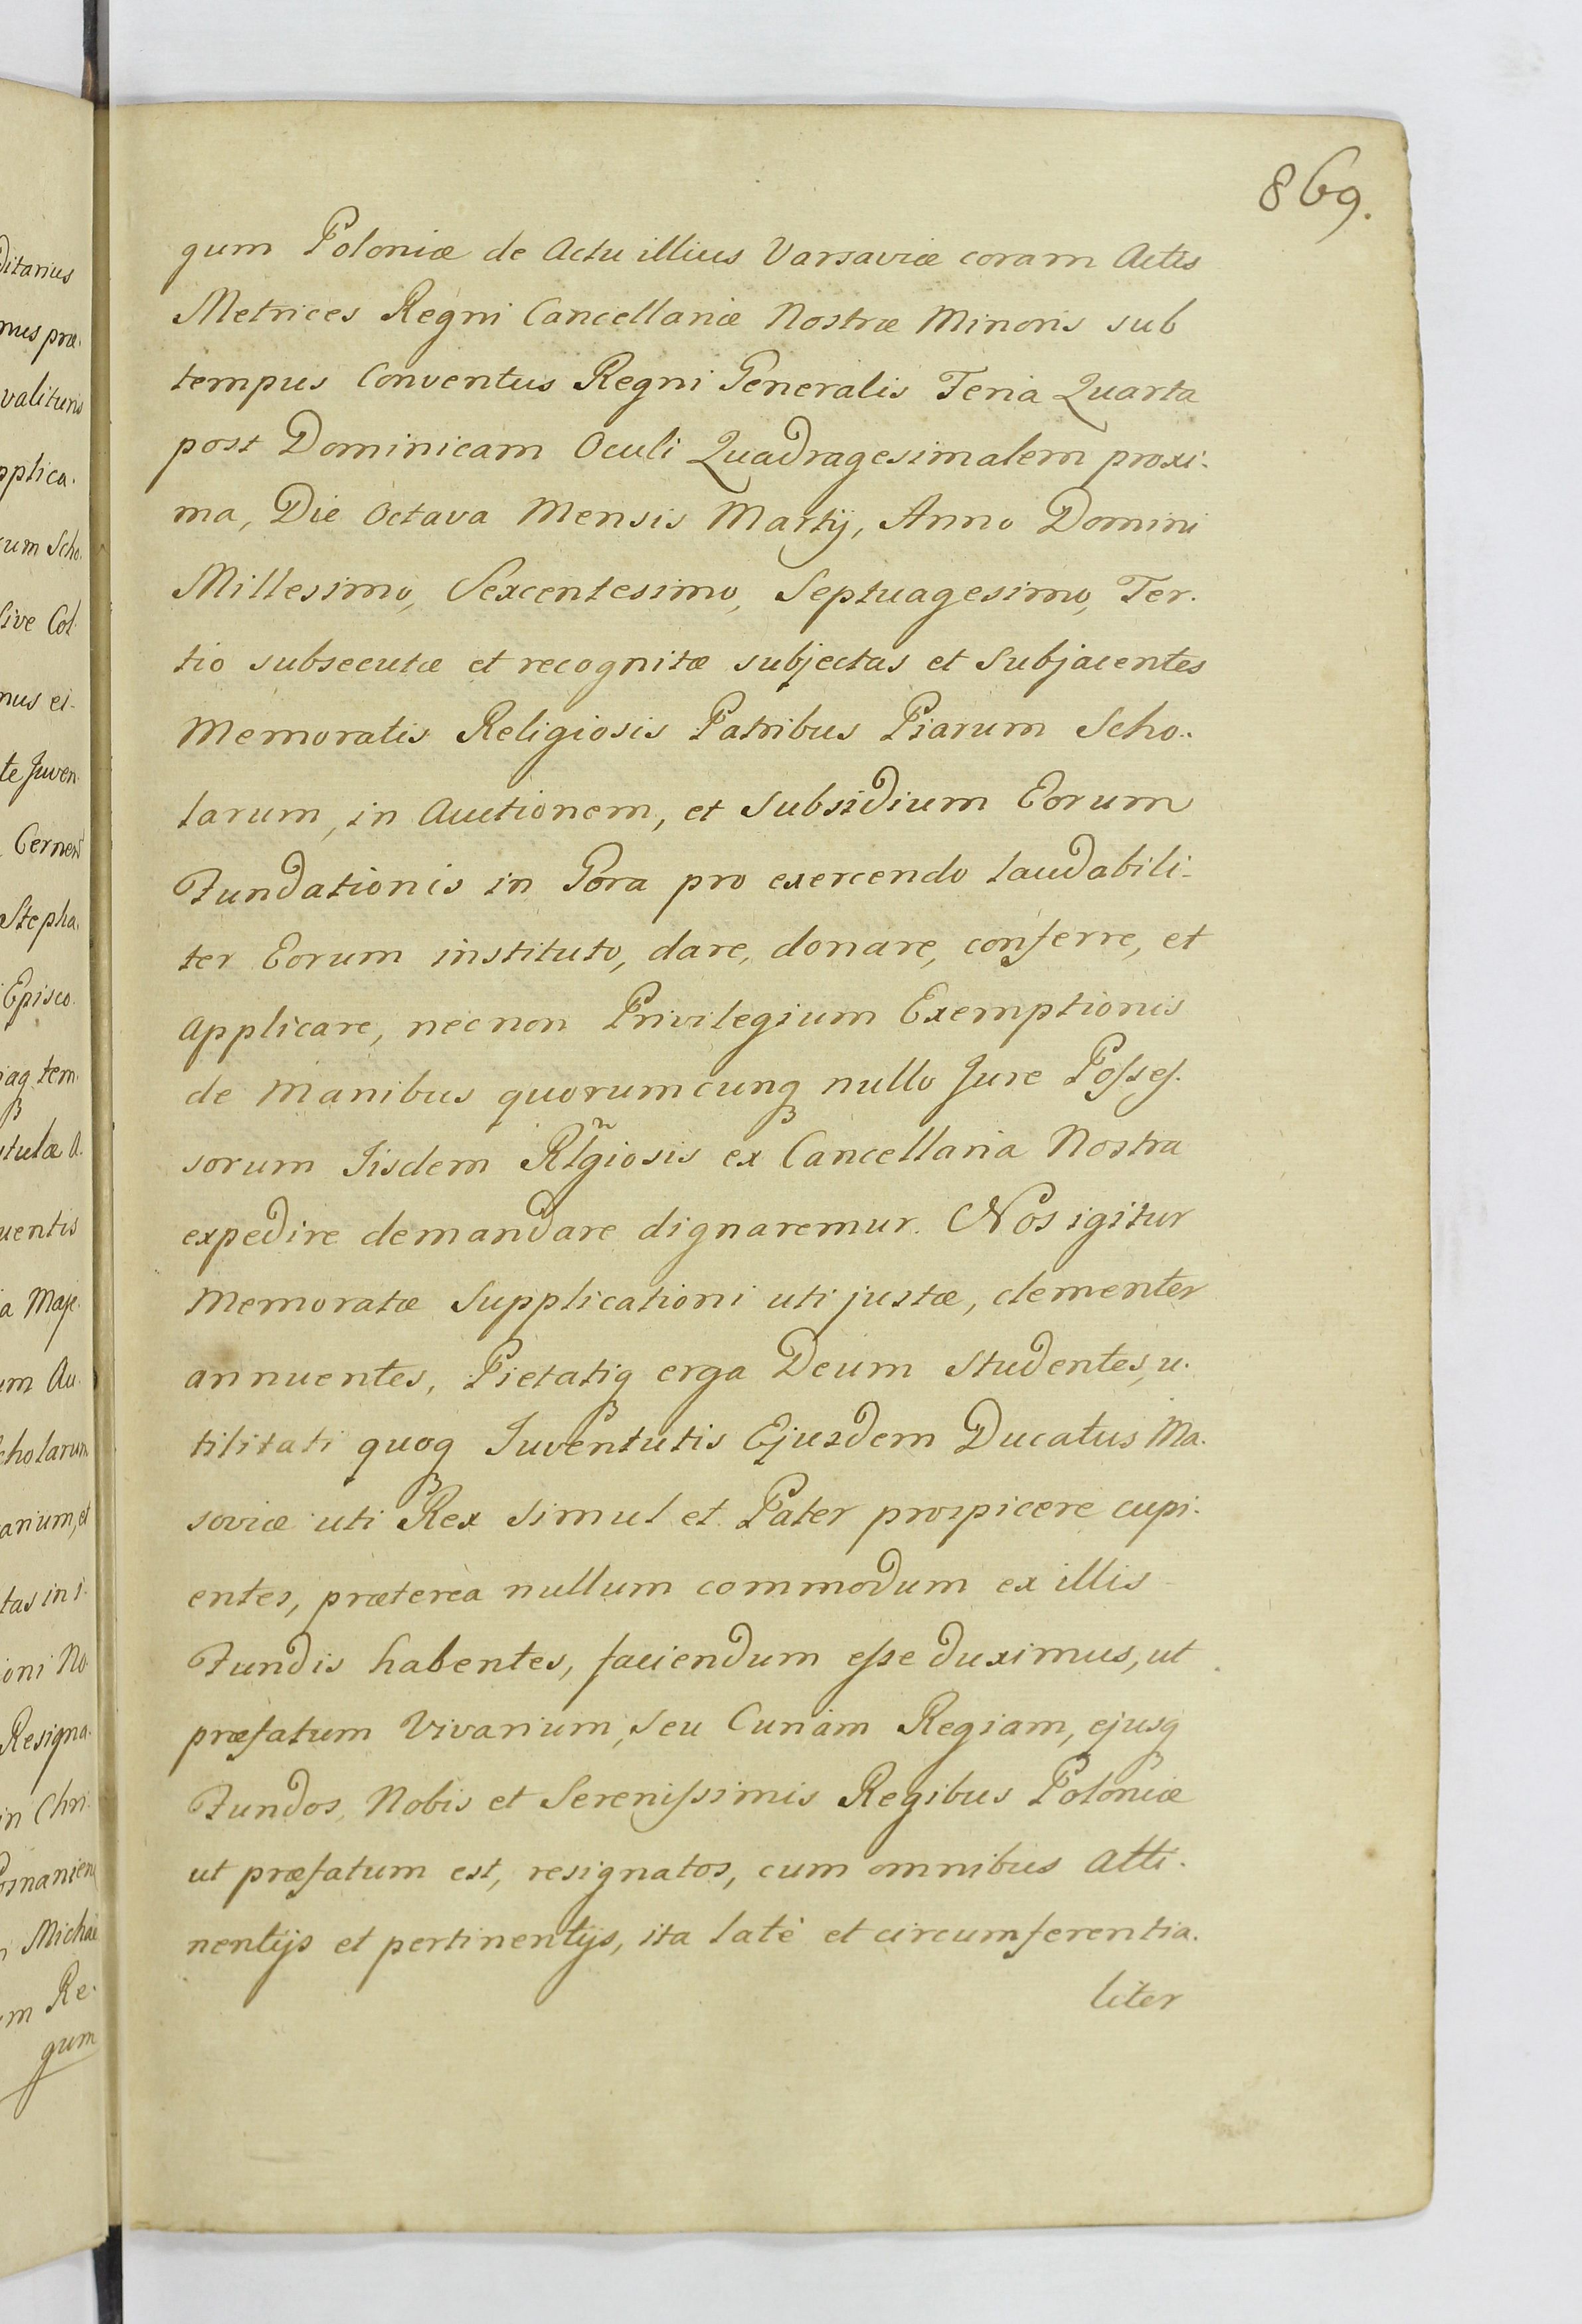 869.
gum Poloniæ de Actu illius Varsaviæ coram Actis
Metrices Regni Cancellariæ Nostræ Minoris sub
tempus Conventus Regni Generalis Feria Quarta
post Dominicam Oculi Quadragesimalem proxi-
ma, Die Octava Mensis Martij, Anno Domini
Millesimo, Sexcentesimo, Septuagesimo, Ter-
tio subsecutæ et recognitæ subjectas et Subjacentes
Memoratis Religiosis Patribus Piarum Scho-
larum, in Auctionem, et Subsidium Eorum
Fundationis in Gora pro exercendo laudabili-
ter Eorum instituto, dare, donare, conferre, et
Applicare, necnon Privilegium Exemptionis
de Manibus quorumcunqꝫ nullo Jure Possess-
sorum Iisdem Rlg̃iosis ex Cancellaria Nostra
expedire demandare dignaremur. Nos igitur
Memoratæ Supplicationi uti justæ, clementer
annuentes, Pietatiqꝫ erga Deum Studentes, u-
tilitati quoqꝫ Iuventutis Ejusdem Ducatus Ma-
soviæ uti Rex Simul et Pater prospicere cupi-
entes, præterea nullum commodum ex illis
Fundis habentes, faciendum esse duximus, ut
præfatum Vivarium, seu Curiam Regiam, ejusqꝫ
Fundos, Nobis et Serenissimis Regibus Poloniæ
ut præfatum est, resignatos, cum omnibus Atti-
nentijs et pertinentijs, ita latè et circumferentia-
liter
ditarius
mus præ-
valituris
pplica-
cum Scho-
Sive Col-
te Juven-
Stepha-
Episco-
uentis
a Maje-
um Au-
cholarum
arium, et
tas in i-
ioni No-
Resigna-
in Chri-
Michaë
m Re-
gum